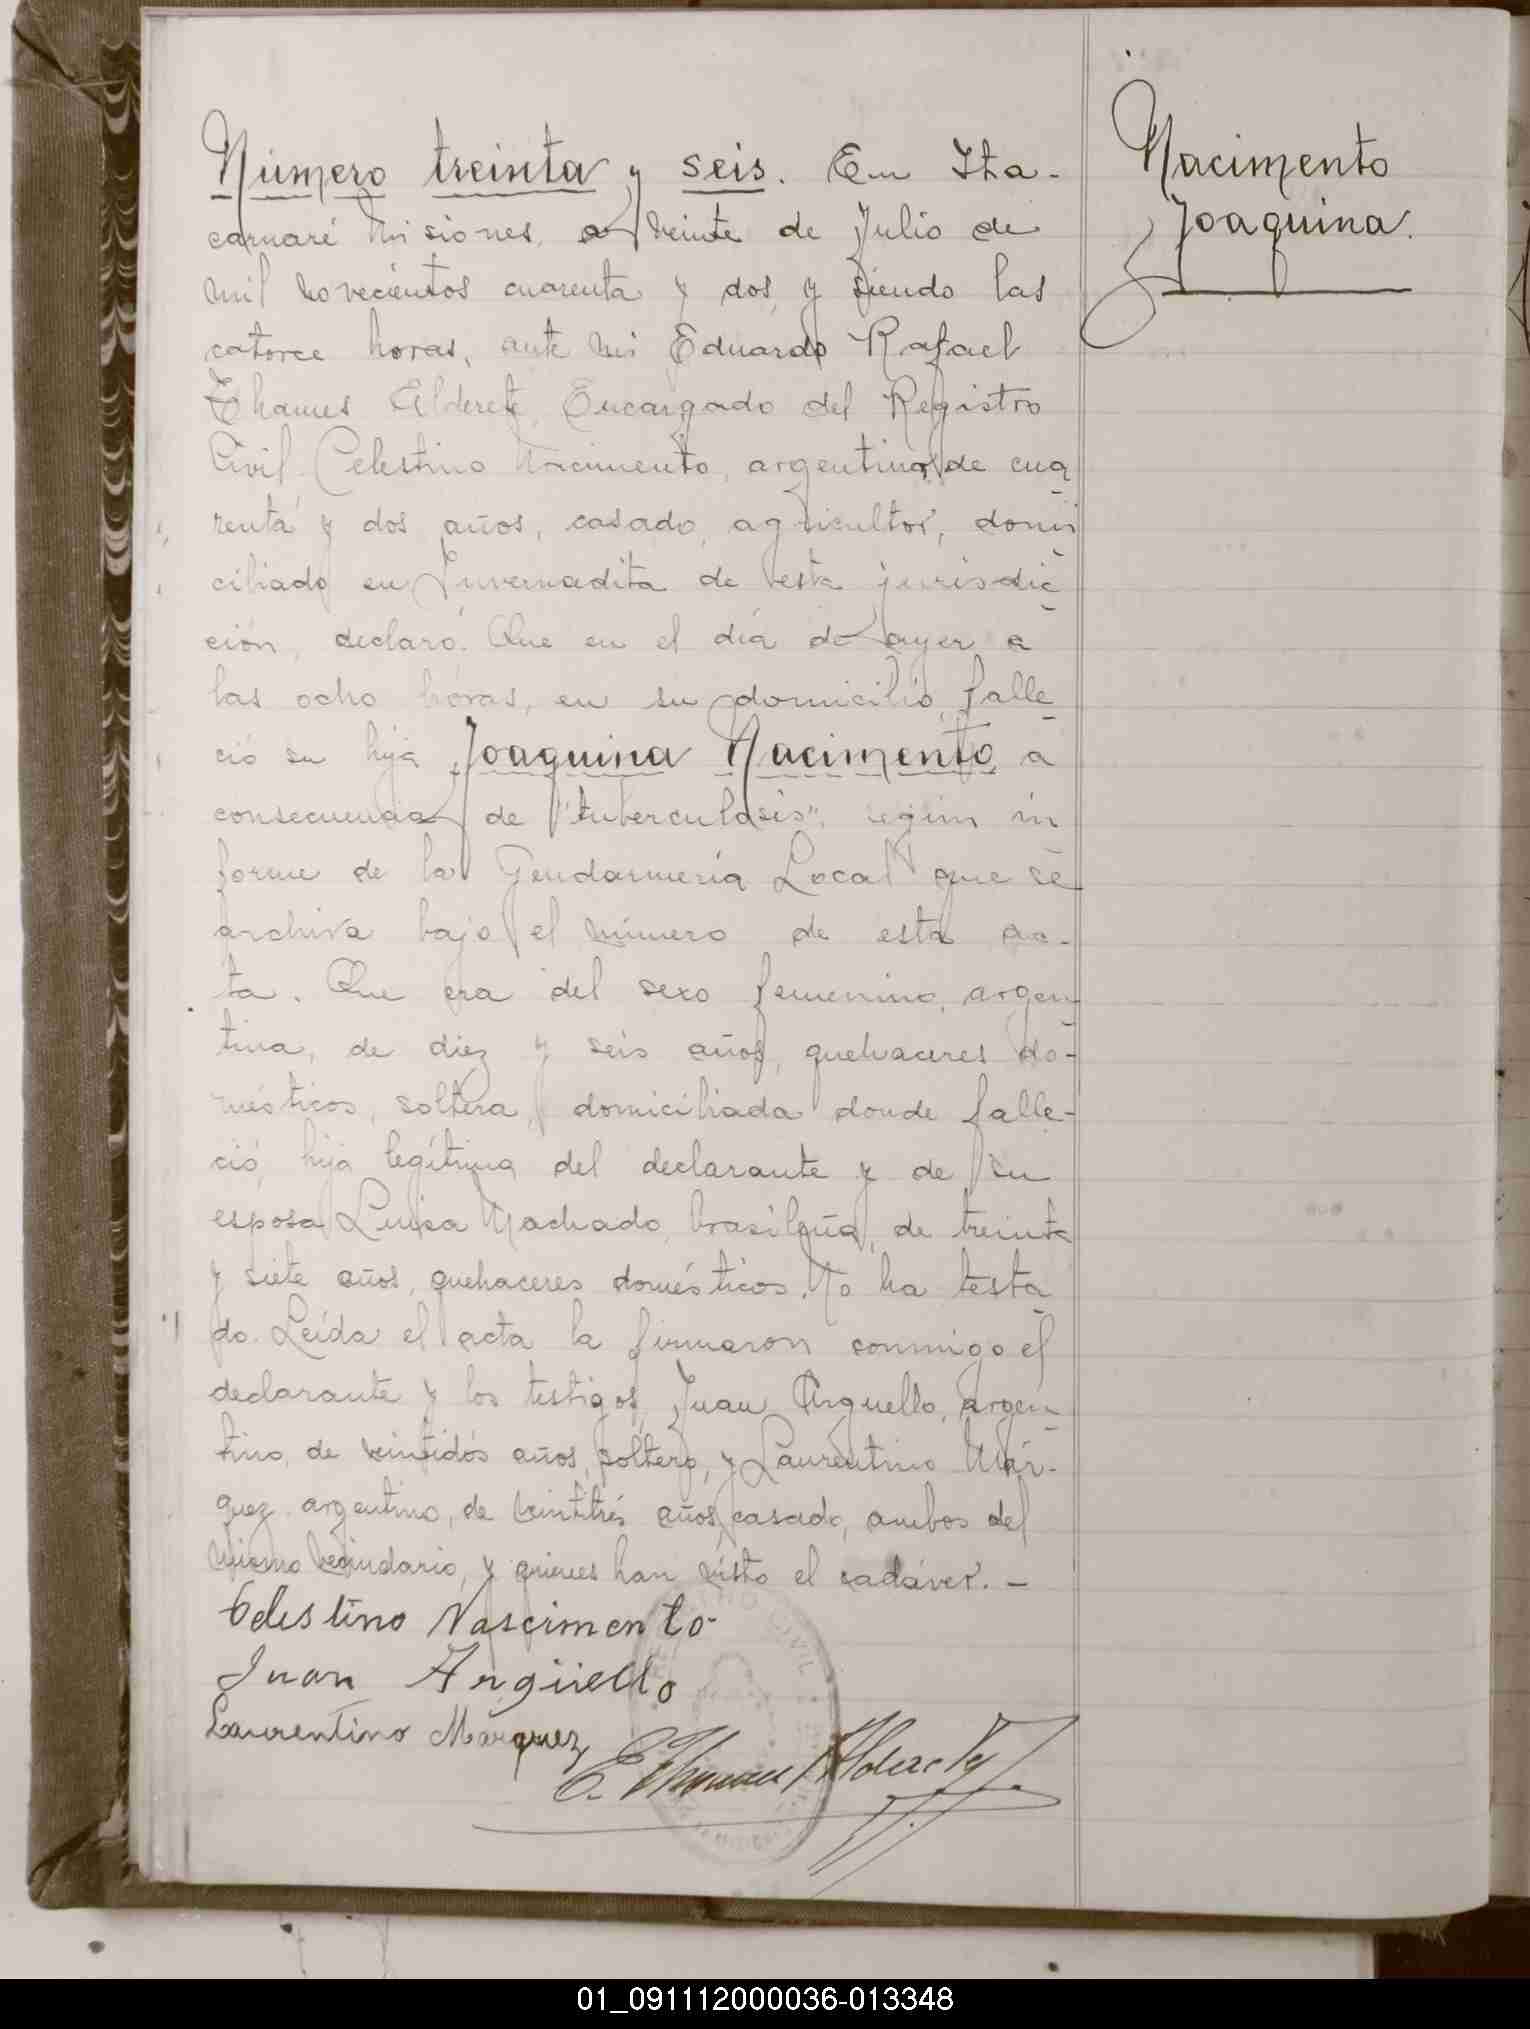 Número treinta y seis. En Ita-
caruaré Misiones, a veinte de Julio de
mil novecientos cuarenta y dos, y siendo las
catorce horas, ante mí Eduardo Rafael
Thames Alderete, Encargado del Registro
Civil, Celestino Nacimento, argentino, de cua
renta y dos años, casado, agricultor, domi
ciliado en Invernadita de esta jurisdic
ción, declaró: Que en el día de ayer a
las ocho horas, en su domicilio, falle
ció su hija Joaquina Nacimento, a
consecuencia de "tuberculosis", según in
forme de la Gendarmería Local que se
archiva bajo el número de esta ac-
ta. Que era del sexo femenino, argen
tina, de diez y seis años, quehaceres do-
mésticos, soltera, domiciliada donde falle-
ció, hija legítima del declarante y de su
esposa Luisa Machado, brasileña, de treinta
y siete años, quehaceres domésticos. No ha testa
do. Leída el acta la firmaron conmigo el
declarante y los testigos, Juan Arguello, argen
tino, de veintidós años, soltero, y Laurentino Már-
quez, argentino, de veintitrés años, casado, ambos del
mismo vecindario, y quienes han visto el cadáver. -
Celestino Nascimento
Juan Argüello
Laurentino Márquez
E. Thames Alderete
Nacimento
Joaquina.
CIVIL
01_091112000036-013348